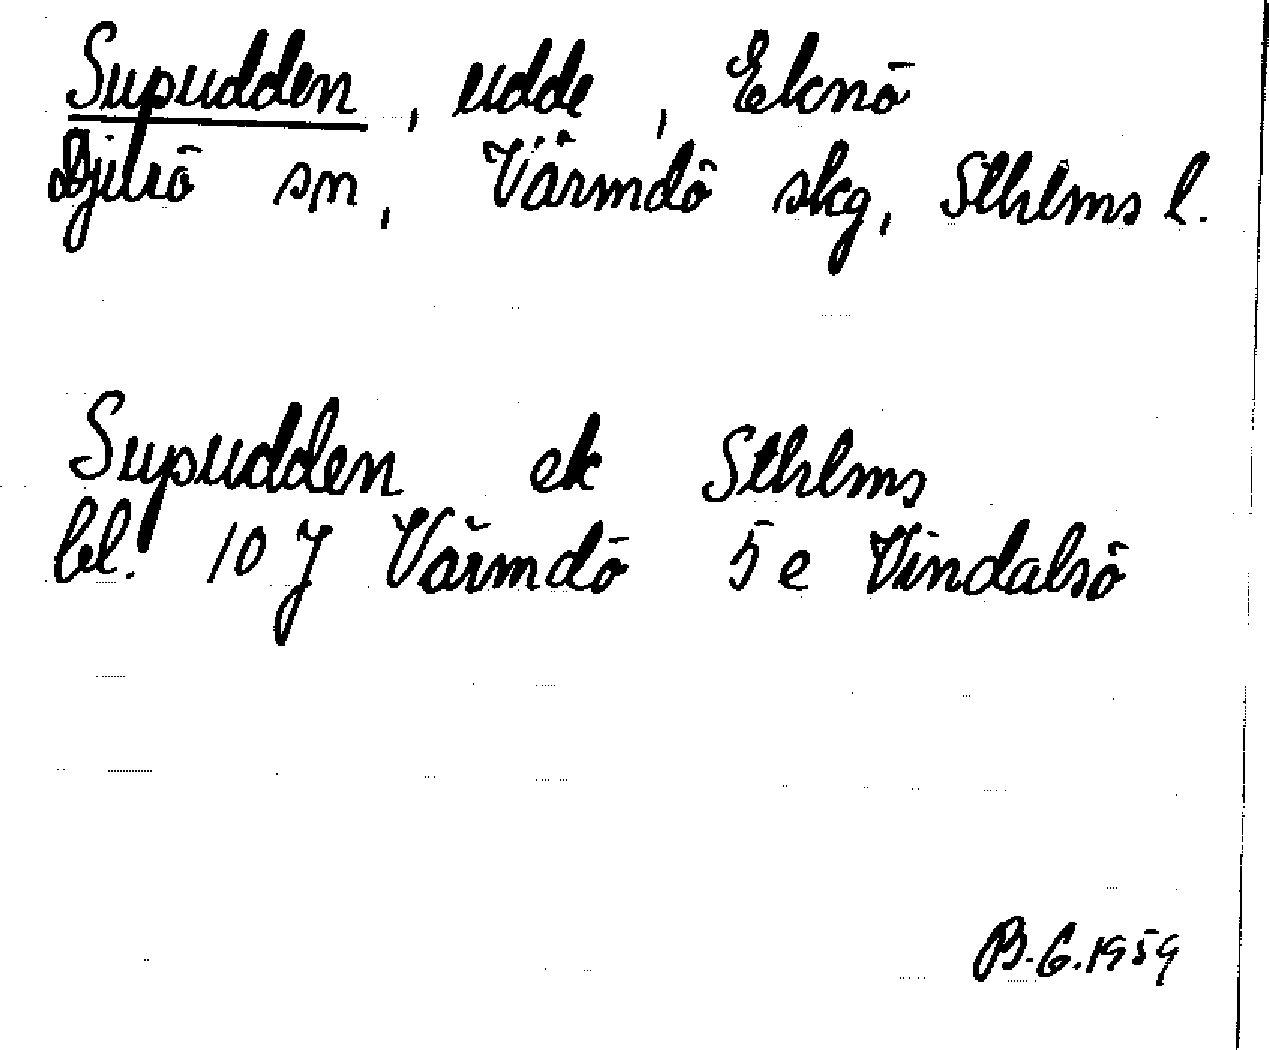 Supudden, udde, Eknö
Djurö sn, Värmdö skg, Sthlms l.
Supudden ek Sthlms
bl. 10 J Värmdö 5 e Vindalsö
B.G. 1959